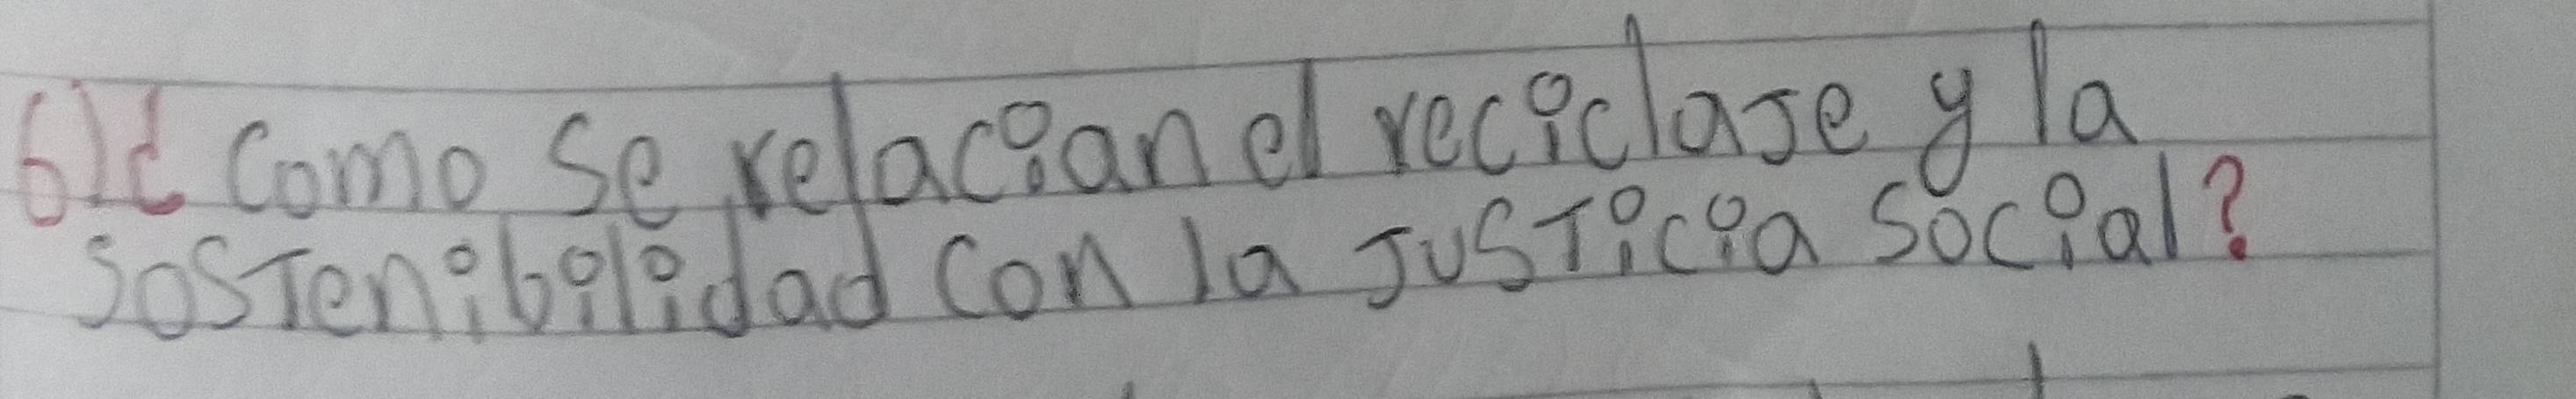 6)¿Como se relacian el reciclaje y la
sostenibilidad con la justicia social?